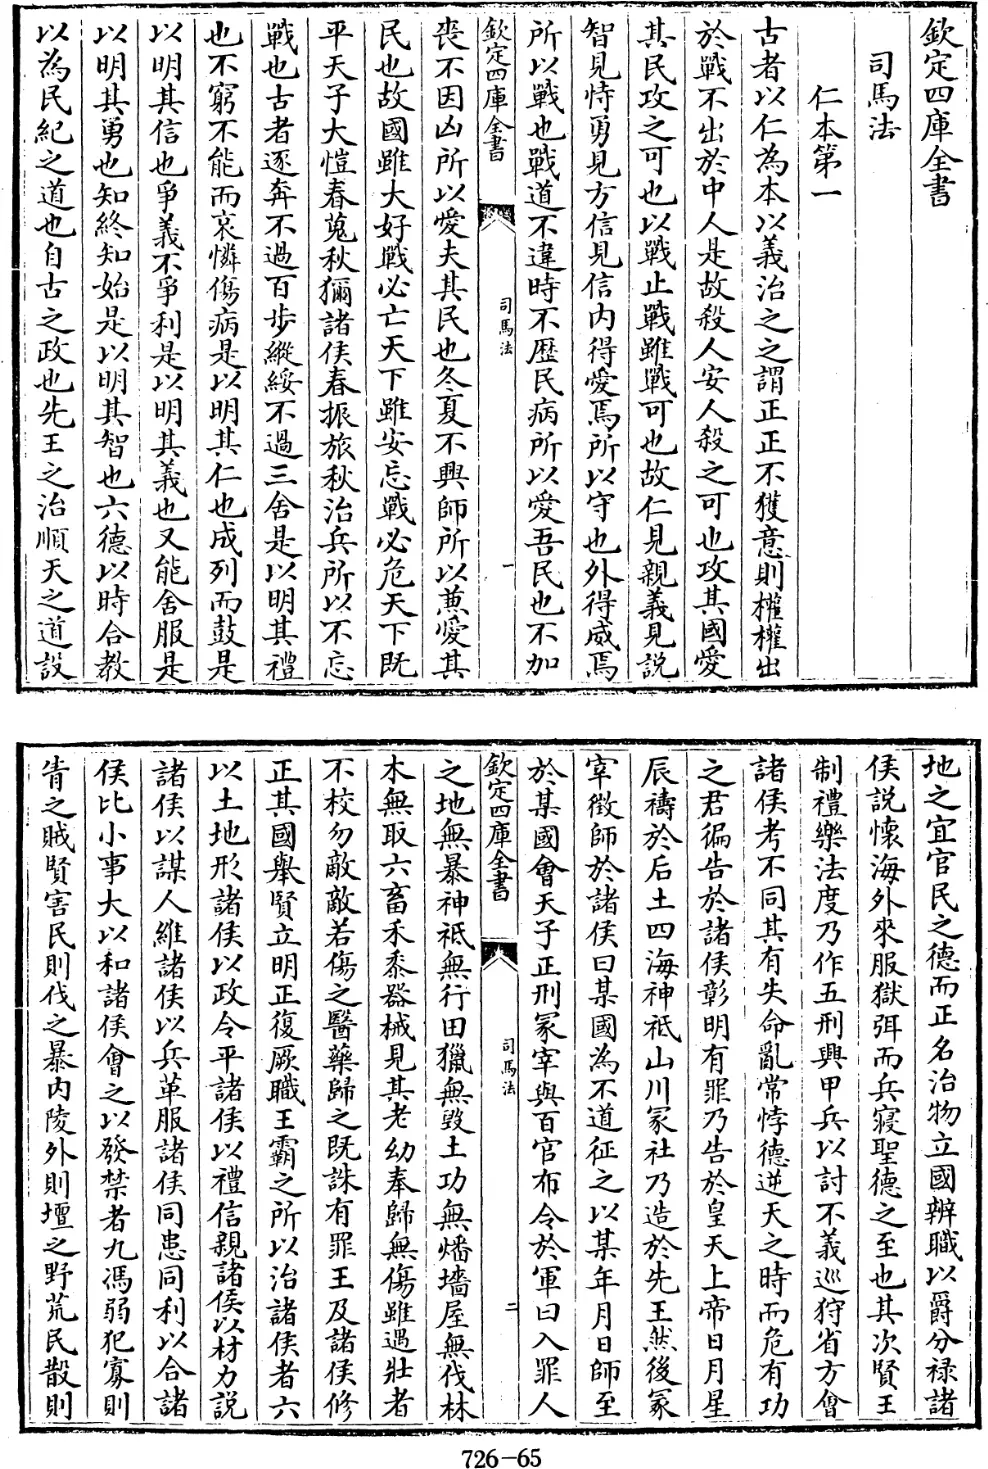 欽定四庫全書
司馬法
仁本第一
古者以仁為本以義治之之謂正正不獲意則權權出
於戰不出於中人是故殺人安人殺之可也攻其國愛
其民攻之可也以戰止戰雖戰可也故仁見親義見説
智見恃勇見方信見信内得愛焉所以守也外得威焉
所以戰也戰道不違時不歷民病所以愛吾民也不加
欽定四庫全書
司馬法
一
喪不因凶所以愛夫其民也冬夏不興師所以兼愛其
民也故國雖大好戰必亡天下雖安忘戰必危天下既
平天子大愷春蒐秋獮諸侯春振旅秋治兵所以不忘
戰也古者逐奔不過百步縱綏不過三舍是以明其禮
也不窮不能而哀憐傷病是以明其仁也成列而鼓是
以明其信也爭義不爭利是以明其義也又能舍服是
以明其勇也知終知始是以明其智也六德以時合教
以為民紀之道也自古之政也先王之治順天之道設
地之宜官民之德而正名治物立國辨職以爵分禄諸
侯説懷海外來服獄弭而兵寢聖德之至也其次賢王
制禮樂法度乃作五刑興甲兵以討不義巡狩省方會
諸侯考不同其有失命亂常悖德逆天之時而危有功
之君徧告於諸侯彰明有罪乃告於皇天上帝日月星
辰禱於后土四海神祇山川冢社乃造於先王然後冢
宰徵師於諸侯曰某國為不道征之以某年月日師至
於某國會天子正刑冢宰與百官布令於軍曰入罪人
欽定四庫全書
司馬法
二
之地無暴神祇無行田獵無毀土功無燔墻屋無伐林
木無取六畜禾黍器械見其老幼奉歸無傷雖遇壯者
不校勿敵敵若傷之醫藥歸之既誅有罪王及諸侯修
正其國舉賢立明正復厥職王霸之所以治諸侯者六
以土地形諸侯以政令平諸侯以禮信親諸侯以材力説
諸侯以謀人維諸侯以兵革服諸侯同患同利以合諸
侯比小事大以和諸侯會之以發禁者九馮弱犯寡則
眚之賊賢害民則伐之暴内陵外則壇之野荒民散則
726-65